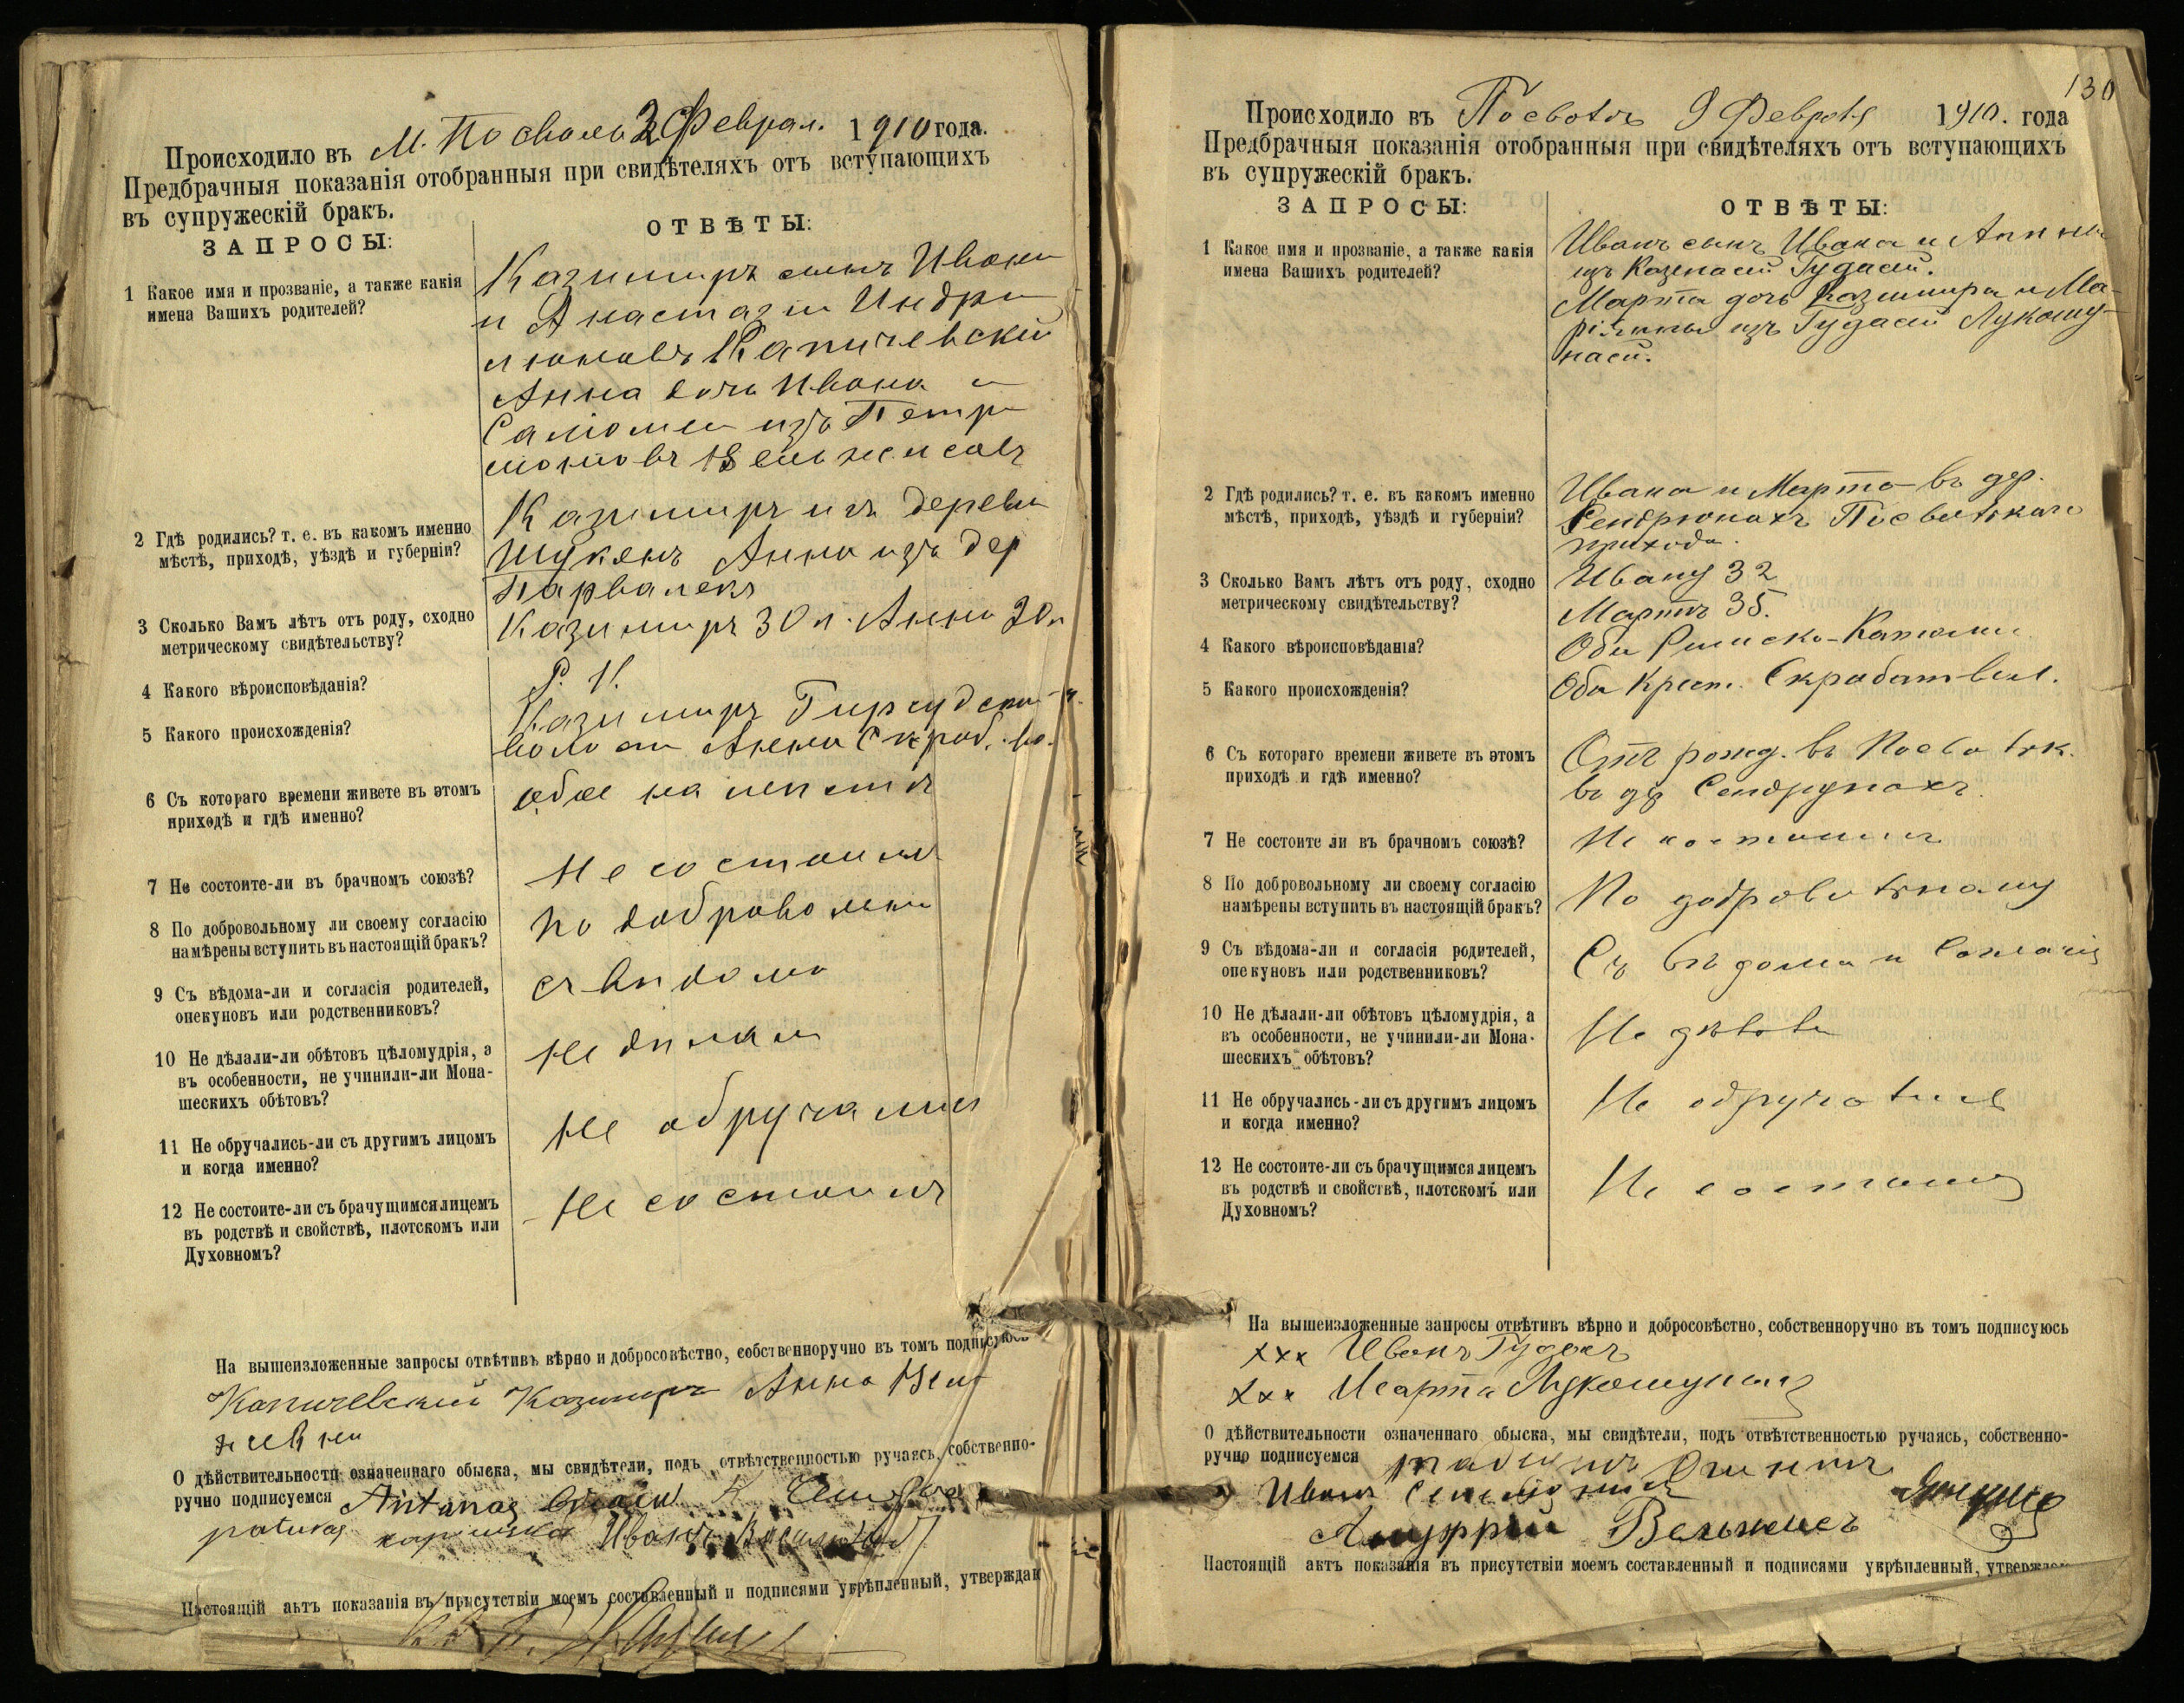 Происходило въ М. Посволь 2 Феврал. 1910 года.
Предбрачныя показанія отобранныя при свидѣтеляхъ отъ вступающихъ
въ супружескій бракъ.
ЗАПРОСЫ:
ОТВѢТЫ:
1 Какое имя и прозваніе, а также какія
имена Вашихъ родителей?
Казимиръ сынъ Ивана
и Анастазіи Индри
люновъ Капичевскій
Анна дочь Ивана и
Саломеи изъ Петри
2 Гдѣ родились? т. е. въ какомъ именно
мѣстѣ, приходѣ, уѣздѣ и губерніи?
Казимиръ изъ деревни
Шукянъ Анна изъ дер
Парвалекъ
3 Сколько Вамъ лѣтъ отъ роду, сходно
метрическому свидѣтельству?
Казимиръ 30 л. Анна 20 л
4 Какого вѣроисповѣданія?
Р. К.
5 Какого происхожденія?
Казимиръ Гирсудской
волости Анна Скроб. во.
6 Съ котораго времени живете въ этомъ
приходѣ и гдѣ именно?
обое на мѣстѣ
7 Не состоите-ли въ брачномъ союзѣ?
Не состоимъ
8 По добровольному ли своему согласію
намѣрены вступить въ настоящій бракъ?
по добровольни
9 Съ вѣдома-ли и согласія родителей,
опекуновъ или родственниковъ?
съ вѣдома
10 Не дѣлали-ли обѣтовъ цѣломудрія, а
въ особенности, не учинили-ли Мона-
шескихъ обѣтовъ?
Не дѣлали
11 Не обручались-ли съ другимъ лицомъ
и когда именно?
Не обручались
12 Не состоите-ли съ брачущимся лицемъ
въ родствѣ и свойствѣ, плотскомъ или
Духовномъ?
Не состоимъ
На вышеизложенные запросы отвѣтивъ вѣрно и добросовѣстно, собственноручно въ томъ подписуюсь
Капичевскій Казимиръ Анна
О дѣйствительности означеннаго обыска, мы свидѣтели, подъ отвѣтственностью ручаясь, собственно-
ручно подписуемся Antanas
Иванъ
Настоящій актъ показанія въ присутствіи моемъ составленный и подписями укрѣпленный, утверждаю
130
Происходило въ Посволь 9 Февраля 1910. года
Предбрачныя показанія отобранныя при свидѣтеляхъ отъ вступающихъ
въ супружескій бракъ.
ЗАПРОСЫ:
ОТВѢТЫ:
1 Какое имя и прозваніе, а также какія
имена Вашихъ родителей?
Иванъ сынъ Ивана и Анны
изъ Казенасъ Гудасъ.
Марта дочь Казимира и Ма-
ріянны изъ Гудасъ Лукошу-
насъ.
2 Гдѣ родились? т. е. въ какомъ именно
мѣстѣ, приходѣ, уѣздѣ и губерніи?
Ивана и Марта въ дер.
Сендрюнахъ Посвольскаго
прихода.
3 Сколько Вамъ лѣтъ отъ роду, сходно
метрическому свидѣтельству?
Ивану 32
Мартѣ 35.
4 Какого вѣроисповѣданія?
Оба Римско-Католик
5 Какого происхожденія?
Оба Крест. Скробот вол.
6 Съ котораго времени живете въ этомъ
приходѣ и гдѣ именно?
Отъ рожд. въ Посвольск.
въ дер Сендрунахъ
7 Не состоите ли въ брачномъ союзѣ?
Не состоимъ
8 По добровольному ли своему согласію
намѣрены вступить въ настоящій бракъ?
По добровольному
9 Съ вѣдома-ли и согласія родителей,
опекуновъ или родственниковъ?
Съ вѣдома и согласія
10 Не дѣлали-ли обѣтовъ цѣломудрія, а
въ особенности, не учинили-ли Мона-
шескихъ обѣтовъ?
Не дѣлали
11 Не обручались-ли съ другимъ лицомъ
и когда именно?
Не обручались
12 Не состоите-ли съ брачущимся лицемъ
въ родствѣ и свойствѣ, плотскомъ или
Духовномъ?
Не состоимъ
На вышеизложенные запросы отвѣтивъ вѣрно и добросовѣстно, собственноручно въ томъ подписуюсь
xxx Иванъ Гудасъ
xxx Марта Лукошунасъ
О дѣйствительности означеннаго обыска, мы свидѣтели, подъ отвѣтственностью ручаясь, собственно-
ручно подписуемся
Иванъ
Ануфрій Вельжисъ
Настоящій актъ показанія въ присутствіи моемъ составленный и подписями укрѣпленный,